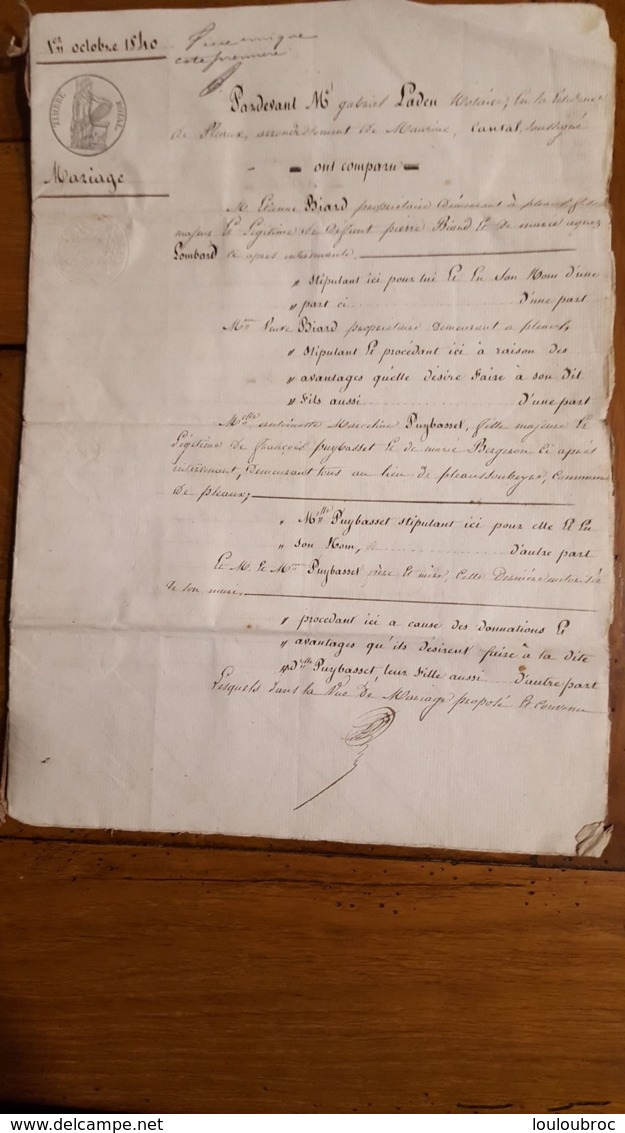 1er octobre 1840
Piece unique
cote premiere
TIMBRE ROYAL
Mariage
Pardevant Me gabriel Laden Notaire, En la Résidence
de Pleaux, arrondissement de Mauriac, Cantal, soussigné
ont comparu
M. Etienne Biard propriétaire Demeurant à pleaux, fils
majeur Et Légitime de Deffunt pierre Biard Et de marie agnez
Lombard ci après intervenante
" stipulant ici pour lui Et En Son Nom d'une
" part ci d'une part
Mme Veuve Biard propriétaire demeurant a pleaux,
" stipulant Et procédant ici à raison des
" avantages qu'elle désire Faire à son Dit
" Fils aussi d'une part
Melle antoinette Marceline Puybasset, fille majeure Et
Légitime de françois puybasset Et de marie Bergeron Ci après
intervenant, Demeurant tous au lieu de pleauxsoubeyre, Commune
De pleaux,
" Melle Puybasset stipulant ici pour elle Et En
" son Nom, d'autre part
Et M. Et Mme Puybasset père Et mère, Cette Dernière autorisée
de son mari,
" procedant ici a cause des donnations Et
" avantages qu'ils désirent faire à la dite
" Delle Puybasset, leur Fille aussi d'autre part
Lesquels dans la Vue De Mariage proposé Et Convenu
louloubroc
www.delcampe.net